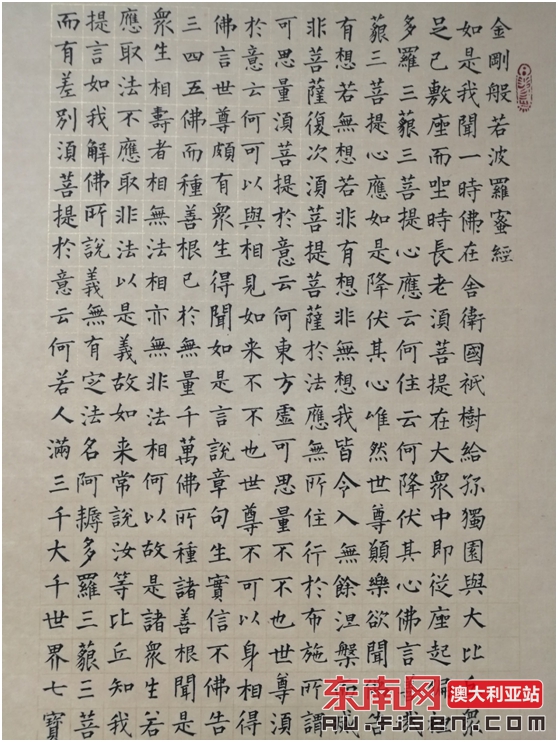 金剛般若波羅蜜經
如是我聞一時佛在舍衛國祇樹給孤獨園與大比衆
足已敷座而坐時長老須菩提在大衆中即從座起
多羅三藐三菩提心應云何住云何降伏其心佛言
藐三菩提心應如是降伏其心唯然世尊願樂欲聞告
有想若無想若非有想非無想我皆令入無餘涅槃
非菩薩復次須菩提菩薩於法應無所住行於布施所謂
可思量須菩提於意云何東方虛可思量不不也世尊須
於意云何可以與相見如来不不也世尊不可以身相得
佛言世尊頗有衆生得聞如是言說章句生實信不佛告
三四五佛而種善根已於無量千萬佛所種諸善根聞是
衆生相壽者相無法相亦無非法相何以故是諸衆生若
應取法不應取非法以是義故如来常說汝等比丘知我
提言如我解佛所說義無有定法名阿耨多羅三藐三菩
而有差別須菩提於意云何若人滿三千大千世界七寶
东南网 澳大利亚站
au.fjsen.com